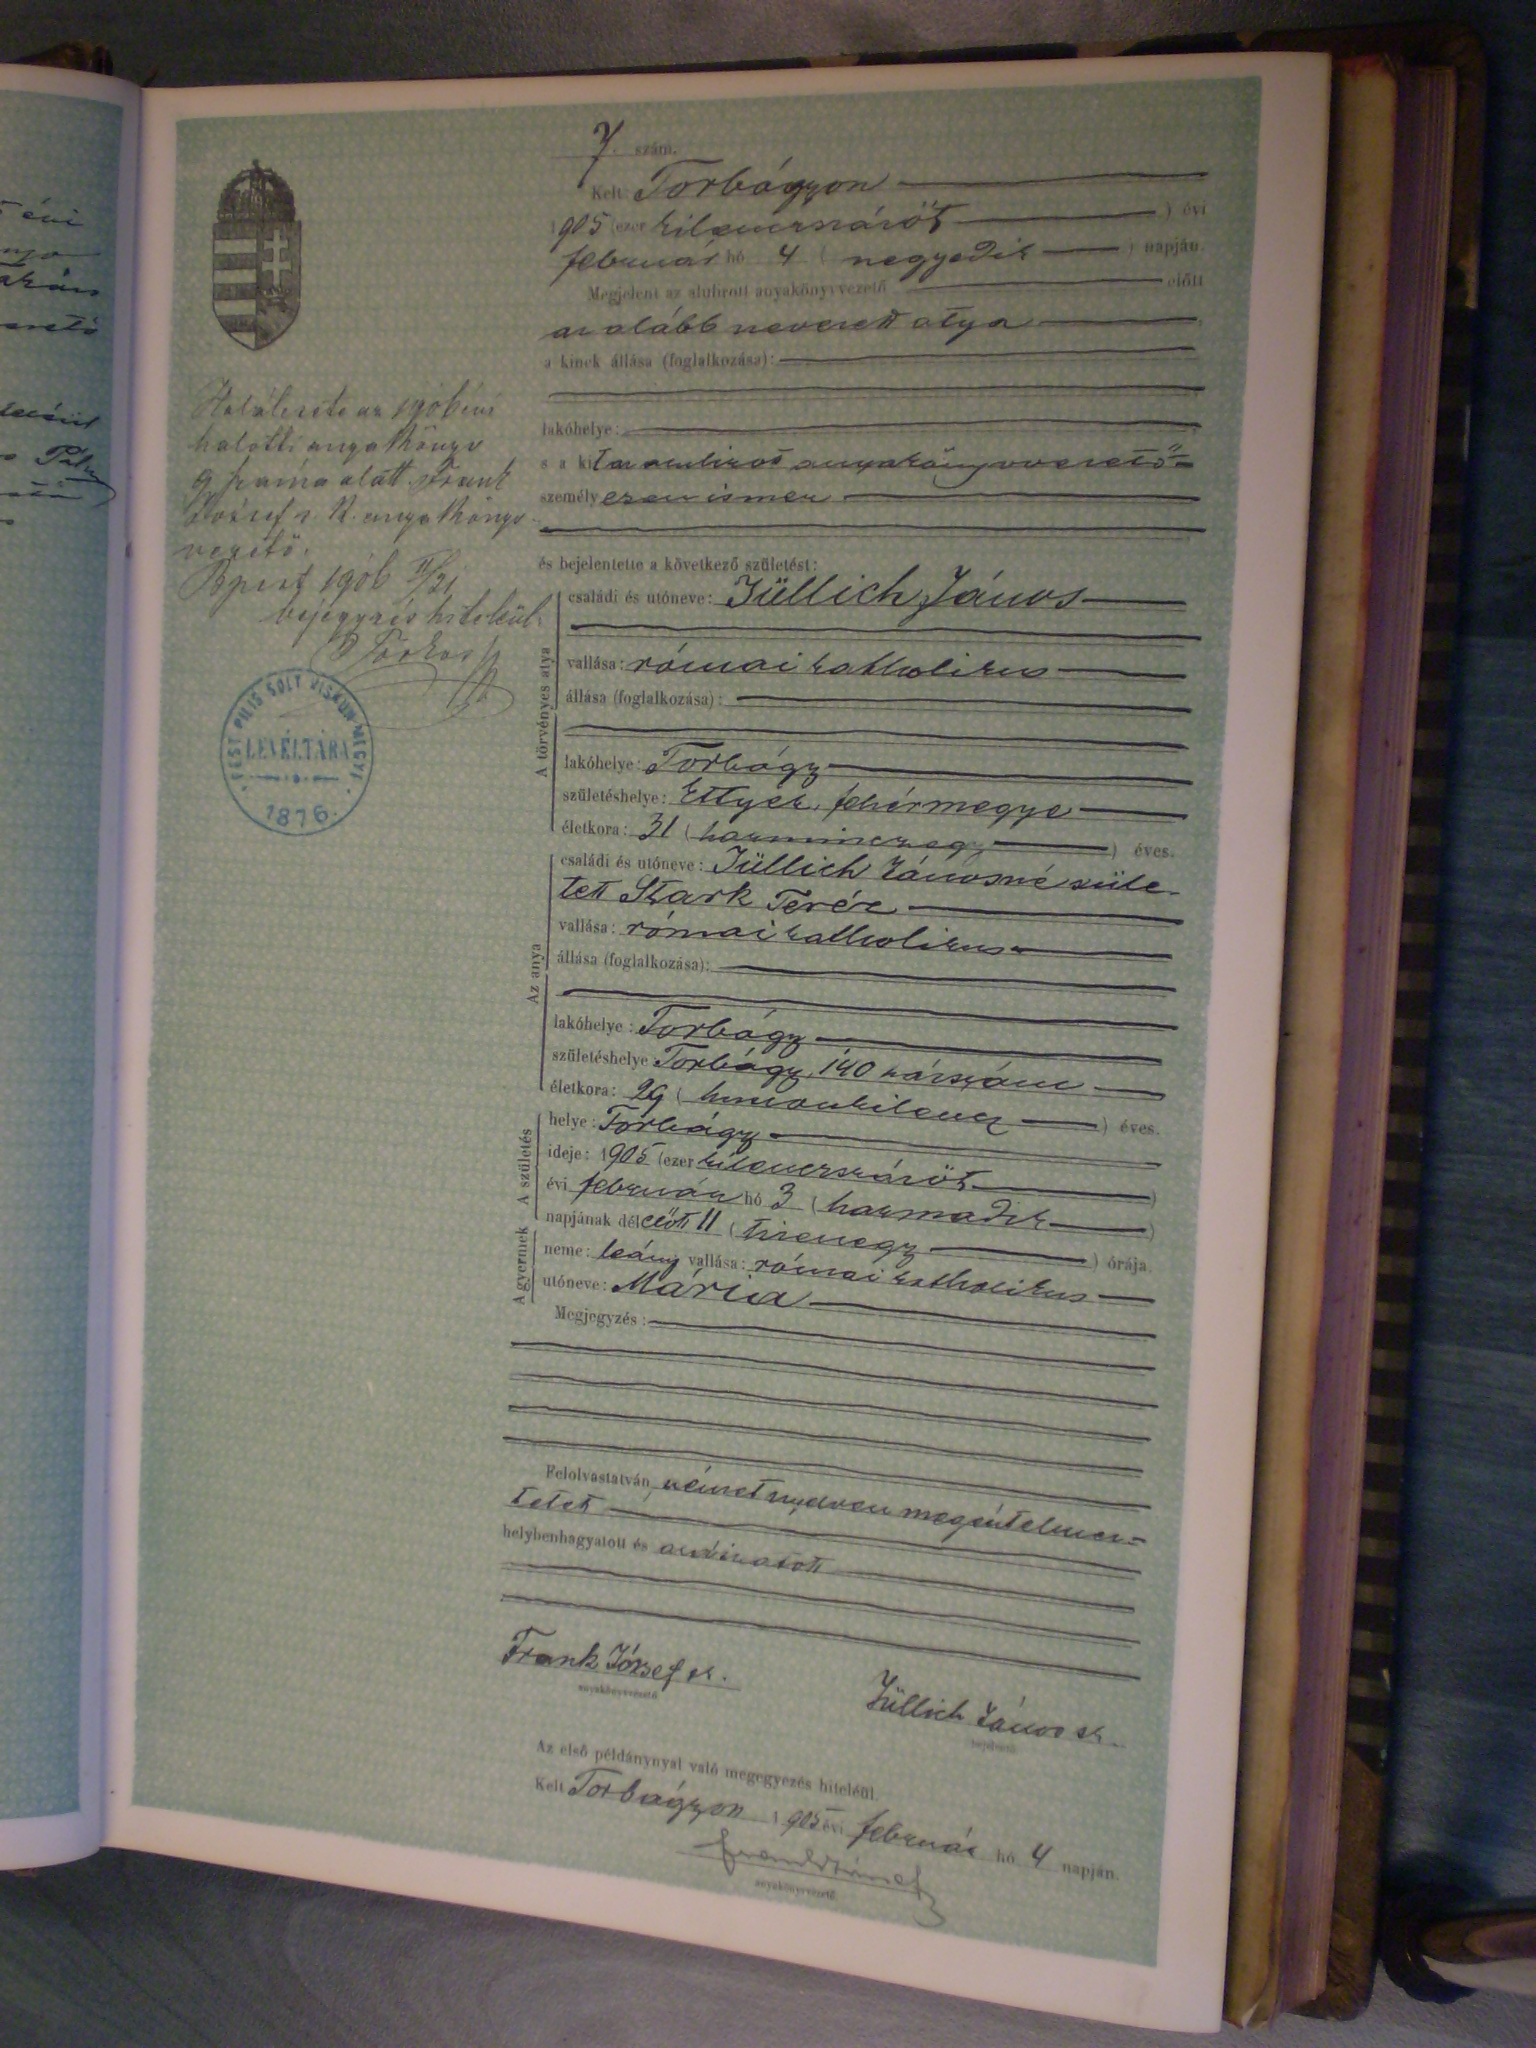 7. szám.
Kelt Torbágyon
1905 (ezer kilenczszázöt ) évi
február hó 4 ( negyedik ) napján.
Megjelent az alulirott anyakönyvvezető előtt
az alább nevezett atya
a kinek állása (foglalkozása):
lakóhelye:
s a kit az alulirott anyakönyvvezető
személyesen ismer
és bejelentette a következő születést:
A törvényes atya
családi és utóneve: Jüllich János
vallása: római katholikus
állása (foglalkozása):
lakóhelye: Torbágy
születéshelye: Ettyek, fehérmegye
életkora: 31 ( harminczegy ) éves.
Az anya
családi és utóneve: Jüllich Jánosné szüle-
tett Stark Teréz
vallása: római katholikus
állása (foglalkozása):
lakóhelye: Torbágy
születéshelye Torbágy, 140 házszám
életkora: 29 ( huszonkilencz ) éves.
A születés
helye: Torbágy
ideje: 1905 (ezer kilenczszázöt )
évi február hó 3 ( harmadik )
napjának délelőtt 11 ( tizenegy ) órája.
A gyermek
neme: leány vallása: római katholikus
utóneve: Mária
Megjegyzés:
Felolvastatván, német nyelven megértelmez-
tetett
helybenhagyatott és aláiratott
Frank József sk.
anyakönyvvezető
Jüllich János sk.
bejelentő
Az első példánynyal való megegyezés hiteléül.
Kelt Torbágyon 1905 évi február hó 4 napján.
Frank József
anyakönyvvezető.
Halálesete az 1906 évi
halotti anyakönyv
9 száma alatt. Frank
József s. k. anyakönyv-
vezető.
Bpest 1906 II/21
bejegyzés hiteléül
PEST PILIS SOLT KISKUN MEGYE
LEVÉLTÁRA
1876.